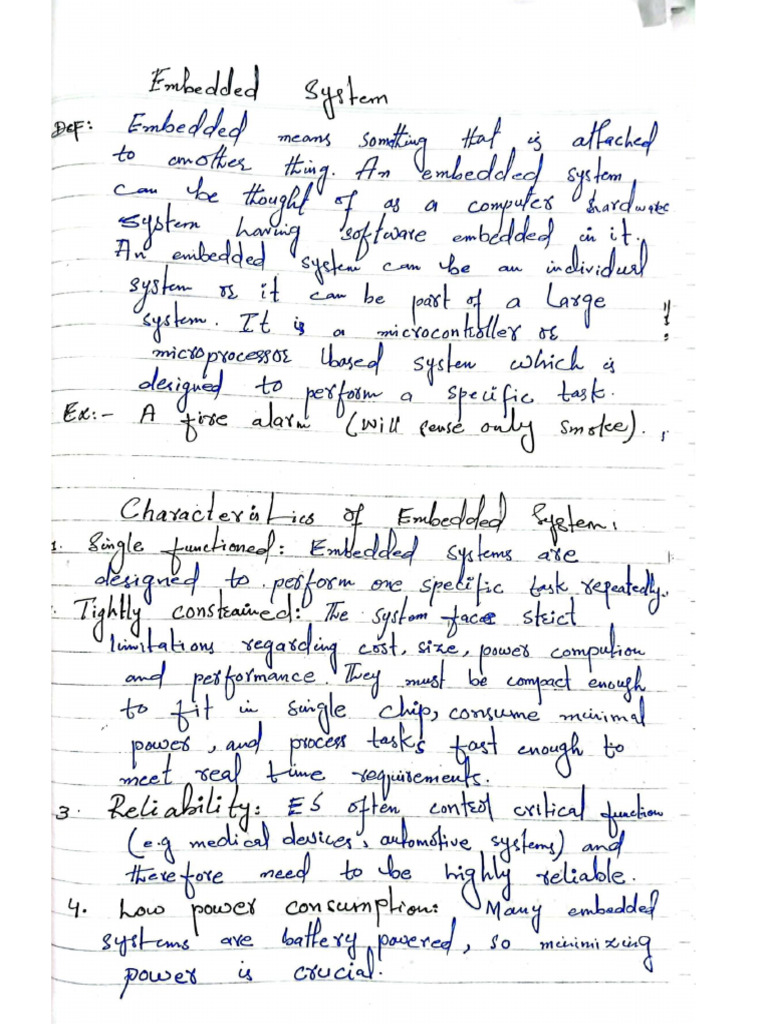 Embedded System
Def: Embedded means something that is attached
to another thing. An embedded system
can be thought of as a computer hardware
system having software embedded in it.
An embedded system can be an individual
system or it can be part of a large
system. It is a microcontroller or
microprocessor based system which is
designed to perform a specific task.
Ex:- A fire alarm (will sense only smoke).
Characteristics of Embedded System:
1. Single functioned: Embedded systems are
designed to perform one specific task repeatedly.
Tightly constrained: The system face strict
limitations regarding cost, size, power compution
and performance. They must be compact enough
to fit in single chip, consume minimal
power, and process tasks fast enough to
meet real time requirements.
3. Reliability: ES often control critical function
(e.g medical devices, automotive systems) and
therefore need to be highly reliable.
4. Low power consumption: Many embedded
systems are battery powered, so minimizing
power is crucial.